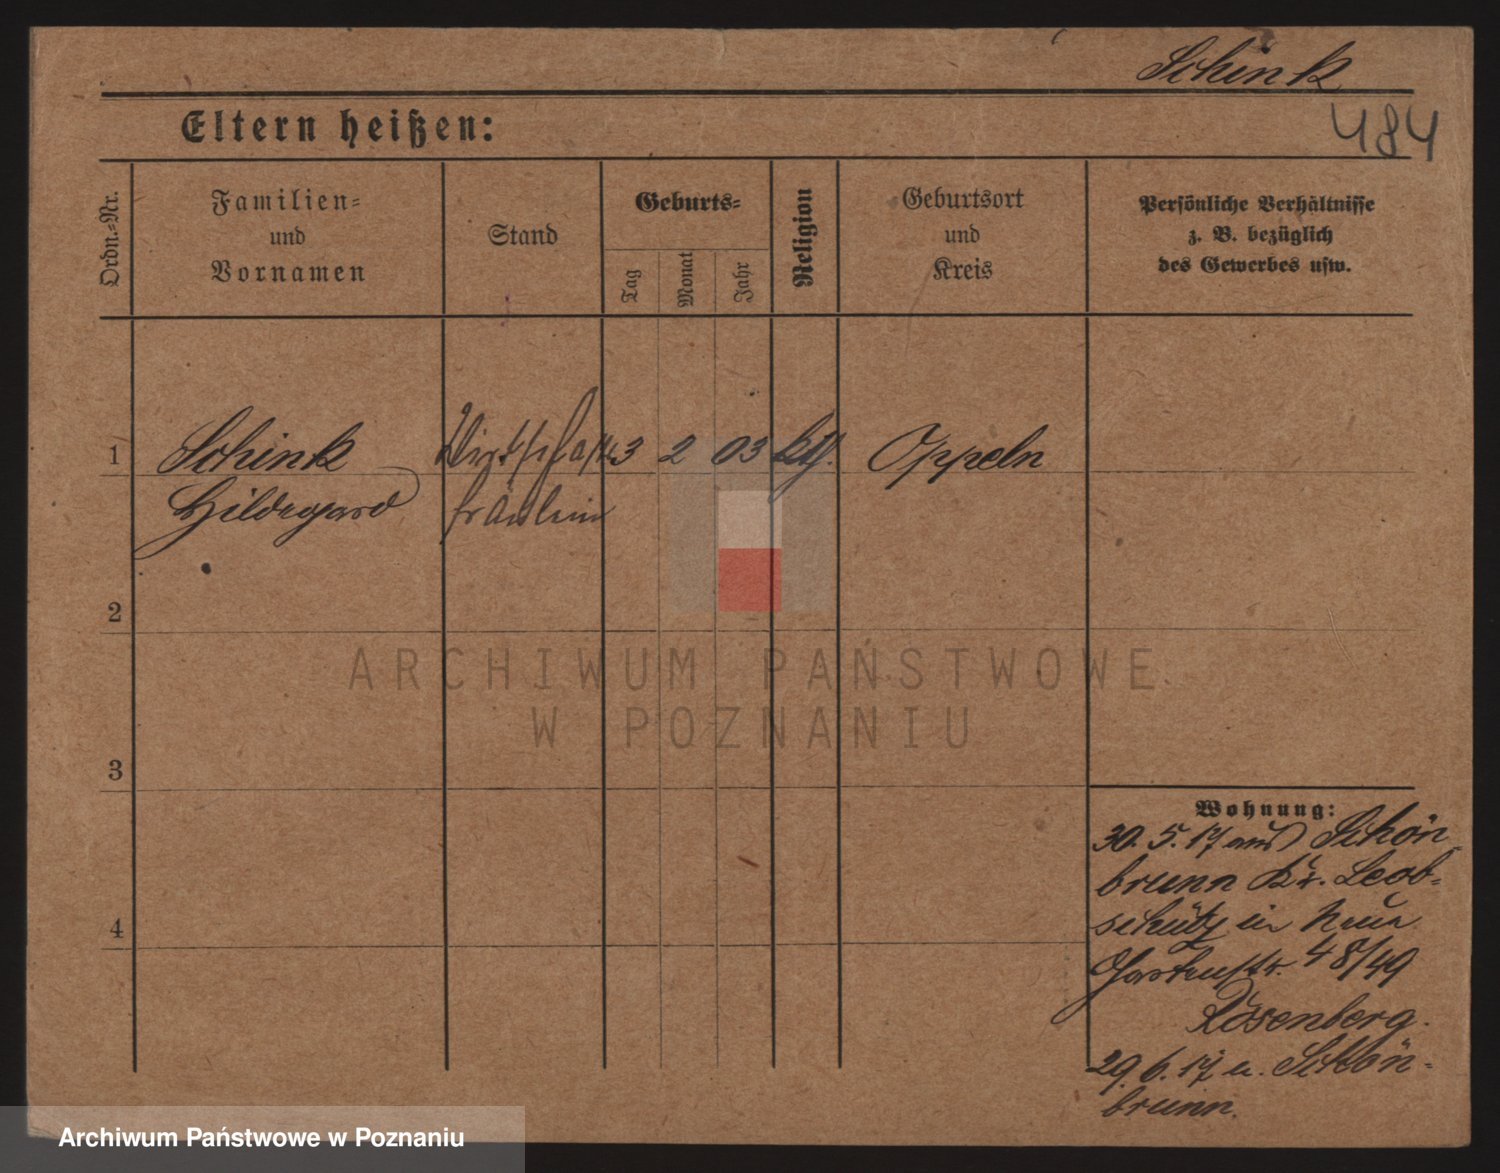 Schink
484
Eltern heißen:
Ordn.-Nr.
Familien-
und
Vornamen
Stand
Geburts-
Tag
Monat
Jahr
Religion
Geburtsort
und
Kreis
Persönliche Verhältnisse
z. B. bezüglich
des Gewerbes usw.
1
Schink
Hildegard
Wirtschafts
fräulein
3 2 03
Oppeln
2
3
4
Wohnung:
30. 5. 17 aus Schön-
brunn Kr. Leob-
schütz in
Gartenstr. 48/49
Rosenberg.
29. 6. 17 n. Schön-
brunn.
ARCHIWUM PAŃSTWOWE
W POZNANIU
Archiwum Państwowe w Poznaniu